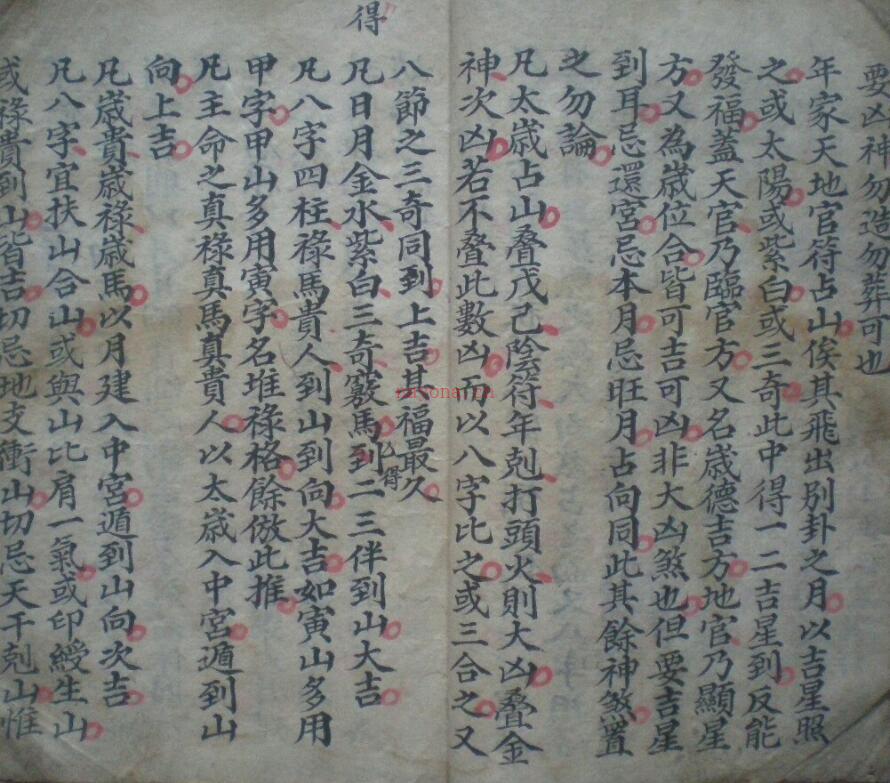 要凶神勿造勿葬可也
年家天地官符占山俟其飛出別卦之月以吉星照
之或太陽或紫白或三奇此中得一二吉星到反能
發福蓋天官乃臨官方又名歲德吉方地官乃顯星
方又為歲位合皆可吉可凶非大凶煞也但要吉星
到耳忌還宮忌本月忌旺月占向同此其餘神煞置
之勿論
凡太歲占山叠戊己陰符年剋打頭火則大凶叠金
神次凶若不叠此數凶而以八字比之或三合之又
得
八節之三奇同到上吉其福最久
凡日月金水紫白三奇竅馬到二三件到山大吉
得
凡八字四柱祿馬貴人到山到向大吉如寅山多用
甲字甲山多用寅字名堆祿格餘倣此推
凡主命之真祿真馬真貴人以太歲入中宮遁到山
向上吉
凡歲貴歲祿歲馬以月建入中宮遁到山向次吉
凡八字宜扶山合山或與山比肩一氣或印綬生山
或祿貴到山皆吉切忌地支衝山切忌天干剋山惟